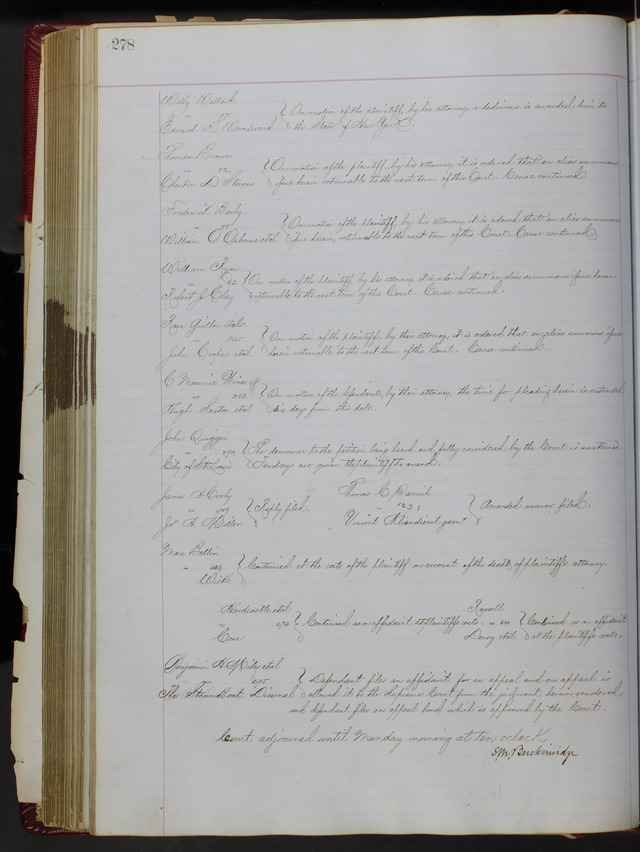 278
Willy Wallach
On motion of the plaintiff, by his attorney, a dedimus is awarded him to
Edward R Woodward the State of New York.
Thomas
On motion of the plaintiff, by his attorney, it is ordered that an alias summons
Chester D Stevens issue herein returnable to the next term of this Court. Cause continued
Frederick
On motion of the plaintiff, by his attorney, it is ordered that an alias summons
William Osborn et al issue herein, returnable to the next term of this Court. Cause continued
William Ryan
On motion of the plaintiff, by his attorney, it is ordered that an alias summons issue herein
Robert J Clay returnable to the next term of this Court. Cause continued.
et al
On motion of the plaintiff, by their attorney, it is ordered that an alias summons issue
John Cooper et al herein returnable to the next term of this Court. Cause continued.
C Maurice
On motion of the defendants, by their attorney, the time for pleading herein is extended
Hugh et al six days from this date.
John Quiggin
The demurrer to the petition being heard and fully considered by the Court is sustained
City of St Louis Ten days are given the plaintiff to amend.
James Cooby Thomas C
Reply filed. 1031 Amended answer filed.
Jos A Miller Vincent garn
Max Ballin
Continued at the costs of the plaintiff on account of the death of plaintiffs attorney.
Weil
Hardcastle et al Russell
Continued on affidavit at plaintiffs costs. Continued on affidavit
Case et al at the plaintiffs costs.
Benjamin H et al
Defendant files an affidavit for an appeal and an appeal is
The Steam Boat allowed it to the Supreme Court from the judgment herein rendered
and defendant files an appeal bond which is approved by the Court.
Court adjourned until Monday morning at ten oclock
S, M, Breckinridge